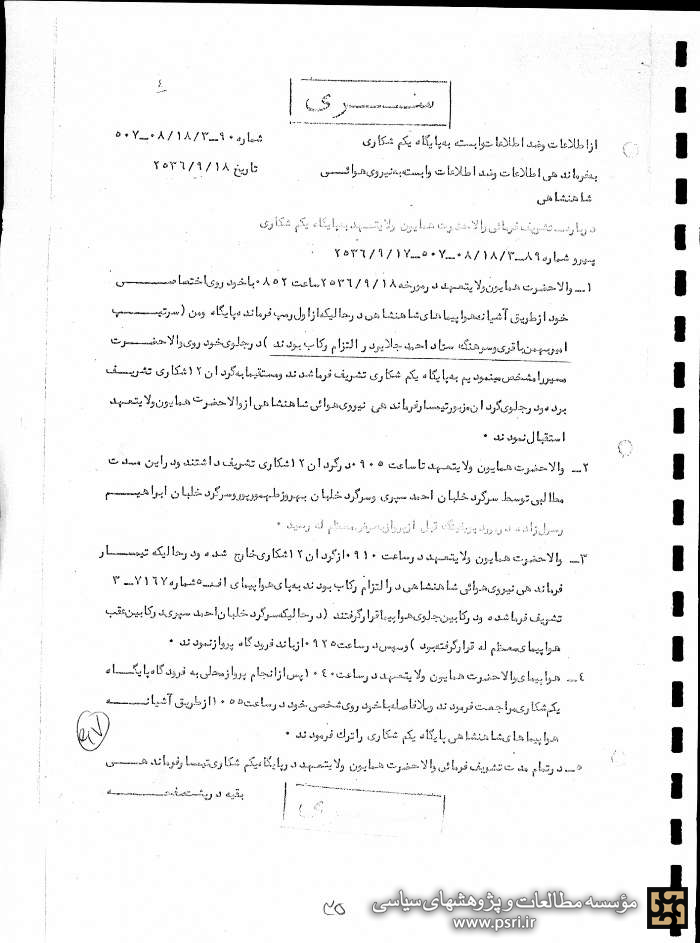 ٤
ســـری
از اطلاعات و ضد اطلاعات وابسته به پایگاه یکم شکاری
شماره ۹۰ــ۳/۱۸/۰۸ــ۵۰۷
به فرماندهی اطلاعات و ضد اطلاعات وابسته به نیروی هوائــی
تاریخ ۲۵۳۶/۹/۱۸
شاهنشاهی
درباره تشریف فرمائی والاحضرت همایون ولایتعهد به پایگاه یکم شکاری
پیرو شماره ۸۹ــ۳/۱۸/۰۸ــ۵۰۷ــ۲۵۳۶/۹/۱۷
۱ــ والاحضرت همایون ولایتعهد در مورخه ۲۵۳۶/۹/۱۸ ساعت ۰۸۵۲ با خودروی اختصاصــی
خود از طریق آشیانه هواپیماهای شاهنشاهی در حالیکه از اول رمپ فرمانده پایگاه ومن (سرتیــپ
امیر بهمن باقری و سرهنگ ستاد احمد جلابر در التزام رکاب بودند ) در جلوی خودروی والاحضــرت
مسیر را مشخص مینمودیم به پایگاه یکم شکاری تشریف فرما شدند و مستقیما به گردان ۱۲ شکاری تشریــف
برده و در جلوی گردان مزبور تیمسار فرماندهی نیروی هوائی شاهنشاهی از والاحضرت همایون ولایتعهد
استقبال نمودند ۰
۲ــ والاحضرت همایون ولایتعهد تا ساعت ۰۹۰۵ در گردان ۱۲ شکاری تشریف داشتند و در این مــدت
مطالبی توسط سرگرد خلبان احمد سپری و سرگرد خلبان بهروز طهمورپور و سرگرد خلبان ابراهیــم
رسول زاده در مورد قبل از پرواز بعرض معظم له رسید ۰
۳ــ والاحضرت همایون ولایتعهد در ساعت ۰۹۱۰ از گردان ۱۲ شکاری خارج شده و در حالیکه تیمسار
فرماندهی نیروی هوائی شاهنشاهی در التزام رکاب بودند به پای هواپیمای اف ــ۵ شماره ۷۱۶۷ــ۳
تشریف فرما شده و در کابین جلوی هواپیما قرار گرفتند (در حالیکه سرگرد خلبان احمد سپری در کابین عقب
هواپیمای معظم له قرار گرفته بود ) و سپس در ساعت ۰۹۲۵ از باند فرودگاه پرواز نمودند ۰
۴ــ هواپیمای والاحضرت همایون ولایتعهد در ساعت ۱۰۴۰ پس از انجام پرواز محلی به فرودگاه پایگــاه
یکم شکاری مراجعت فرمودند و بلافاصله با خودروی شخصی خود در ساعت ۱۰۵۵ از طریق آشیانــه
هواپیماهای شاهنشاهی پایگاه یکم شکاری را ترک فرمودند ۰
۵ــ در تمام مدت تشریف فرمائی والاحضرت همایون ولایتعهد در پایگاه یکم شکاری تیمسار فرماندهــی
بقیه در پشت صفحــه
ســری
۳۵
مؤسسه مطالعات و پژوهشهای سیاسی
www.psri.ir